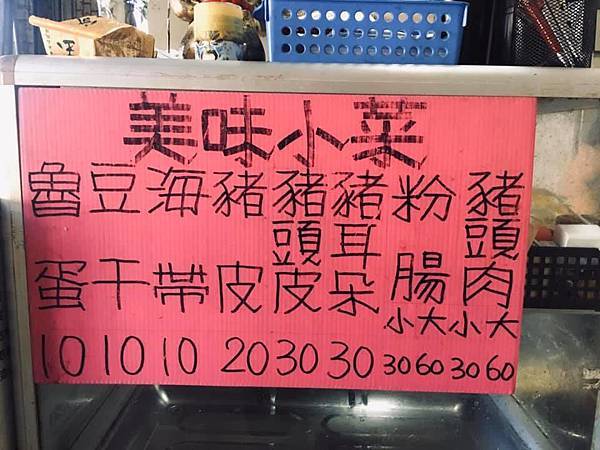 美味小菜
魯蛋 10
豆干 10
海帶 10
豬皮 20
豬頭皮 30
豬耳朵 30
粉腸 小 30 大 60
豬頭肉 小 30 大 60